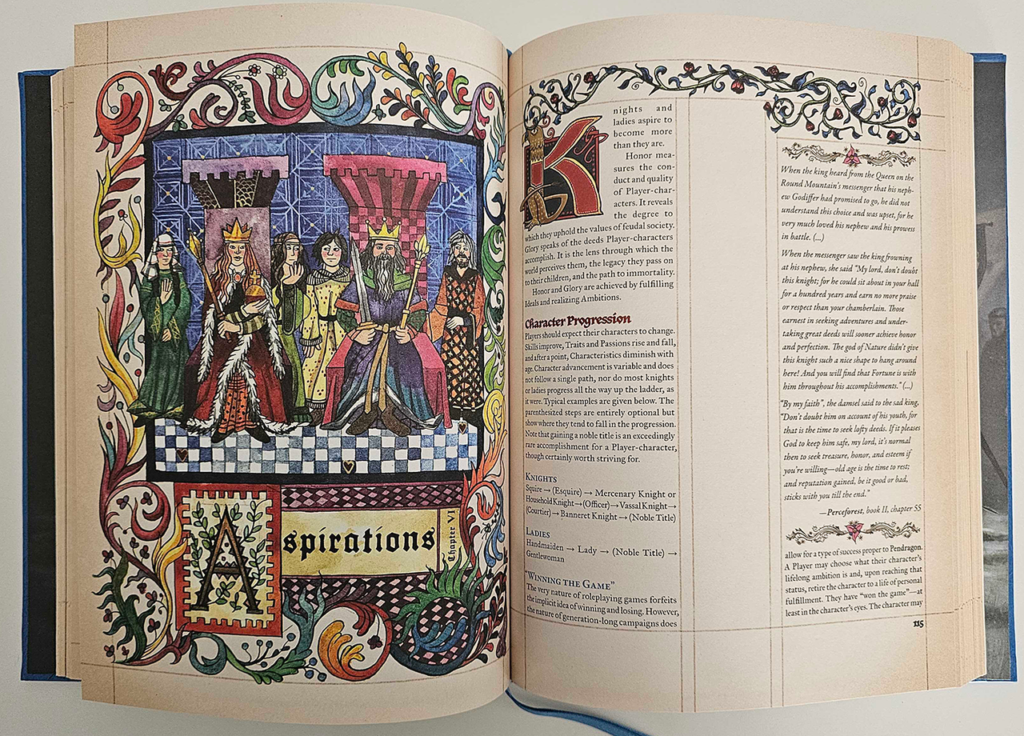 Aspirations
Chapter VI
Knights and
ladies aspire to
become more
than they are.
Honor mea-
sures the con-
duct and quality
of Player-char-
acters. It reveals
the degree to
which they uphold the values of feudal society.
Glory speaks of the deeds Player-characters
accomplish. It is the lens through which the
world perceives them, the legacy they pass on
to their children, and the path to immortality.
Honor and Glory are achieved by fulfilling
Ideals and realizing Ambitions.
Character Progression
Players should expect their characters to change.
Skills improve, Traits and Passions rise and fall,
and after a point, Characteristics diminish with
age. Character advancement is variable and does
not follow a single path, nor do most knights
or ladies progress all the way up the ladder, as
it were. Typical examples are given below. The
parenthesized steps are entirely optional but
show where they tend to fall in the progression.
Note that gaining a noble title is an exceedingly
rare accomplishment for a Player-character,
though certainly worth striving for.
Knights
Squire → (Esquire) → Mercenary Knight or
Household Knight → (Officer) → Vassal Knight →
(Courtier) → Banneret Knight → (Noble Title)
Ladies
Handmaiden → Lady → (Noble Title) →
Gentlewoman
"Winning the Game"
The very nature of roleplaying games forfeits
the implicit idea of winning and losing. However,
the nature of generation-long campaigns does
When the king heard from the Queen on the
Round Mountain's messenger that his neph-
ew Godiffer had promised to go, he did not
understand this choice and was upset, for he
very much loved his nephew and his prowess
in battle. (...)
When the messenger saw the king frowning
at his nephew, she said "My lord, don't doubt
this knight; for he could sit about in your hall
for a hundred years and earn no more praise
or respect than your chamberlain. Those
earnest in seeking adventures and under-
taking great deeds will sooner achieve honor
and perfection. The god of Nature didn't give
this knight such a nice shape to hang around
here! And you will find that Fortune is with
him throughout his accomplishments." (...)
"By my faith", the damsel said to the sad king,
"Don't doubt him on account of his youth, for
that is the time to seek lofty deeds. If it pleases
God to keep him safe, my lord, it's normal
then to seek treasure, honor, and esteem if
you're willing—old age is the time to rest;
and reputation gained, be it good or bad,
sticks with you till the end."
—Perceforest, book II, chapter 55
allow for a type of success proper to Pendragon.
A Player may choose what their character's
lifelong ambition is and, upon reaching that
status, retire the character to a life of personal
fulfillment. They have "won the game"—at
least in the character's eyes. The character may
115